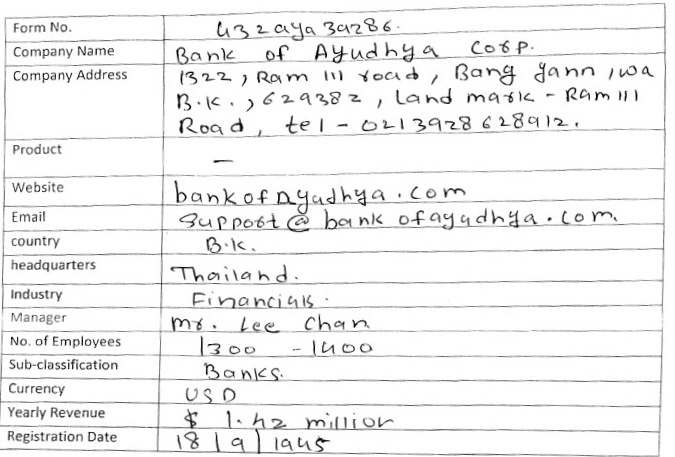 Form No. 432aya39286.
Company Name Bank of Ayudhya Corp.
Company Address 1322, Ram III road, Bang Yann, wa
B.K., 629382, Land mark - Ram III
Road, tel - 0213928628912.
Product –
Website bankofAyudhya.com
Email Support@bankofayudhya.com.
country B.K.
headquarters Thailand.
Industry Financials.
Manager Mr. Lee Chan
No. of Employees 1300 - 1400
Sub-classification Banks.
Currency USD
Yearly Revenue $ 1.42 million
Registration Date 18/9/1945